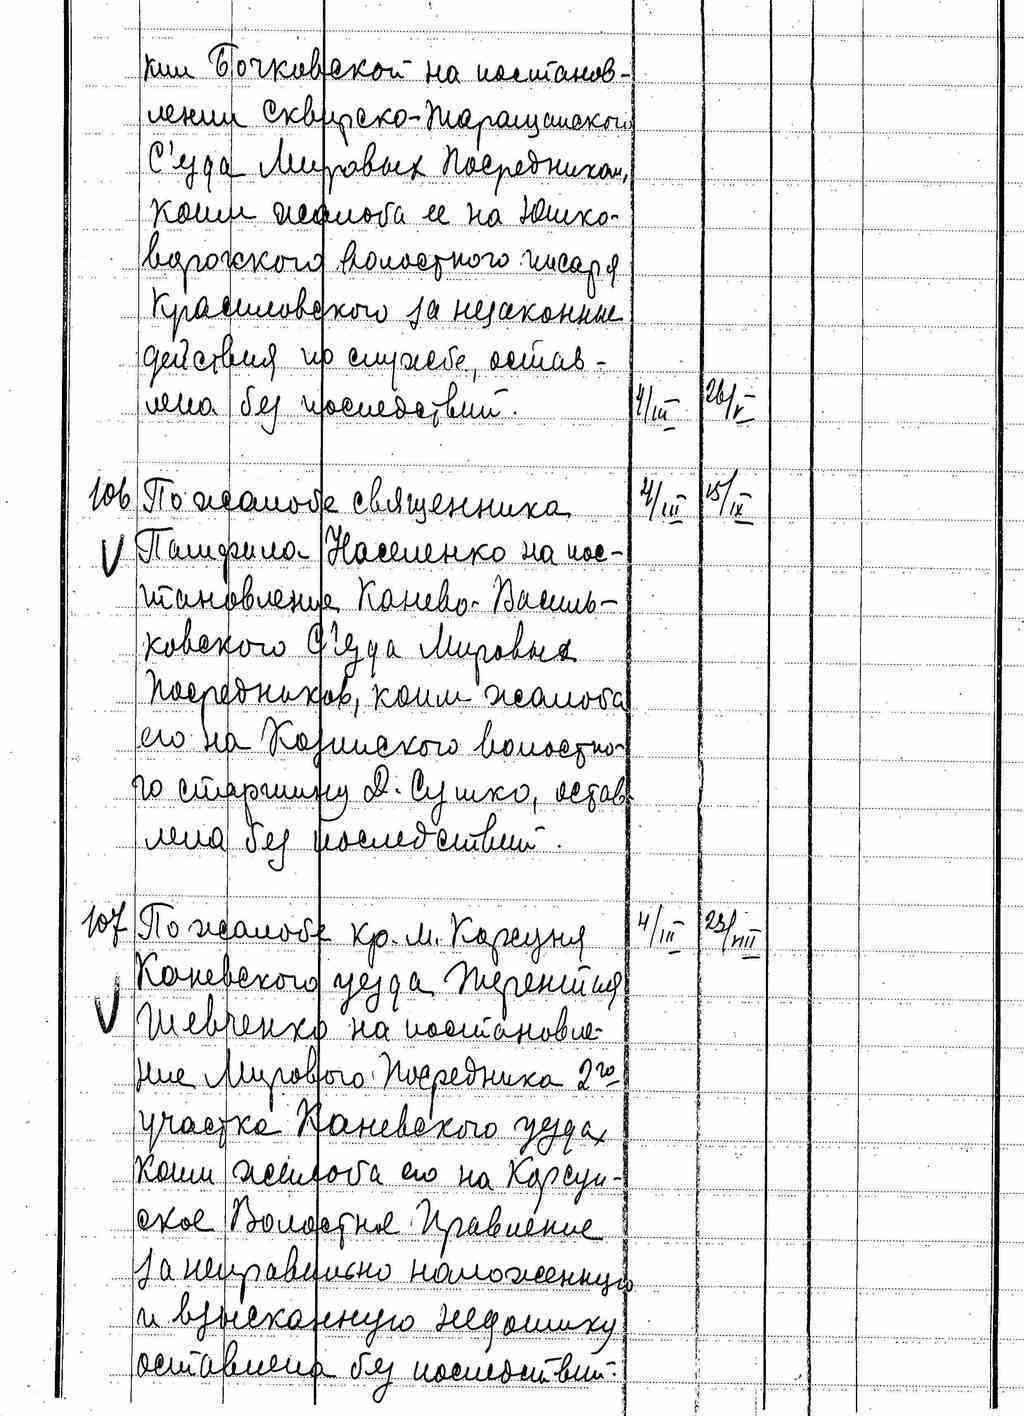 кии Бочковской на постанов-
лении Сквирско-Таращанского
С'езда Мировых Посредников,
коим жалоба ее на Юшко-
ворожского волостного писаря
Красиловского за незаконные
действия по службе, остав-
лена без последствий. 4/III 26/V
106 По жалобе священника 4/III 15/IX
V Памфила Населенко на пос-
тановление Канево-Василь-
ковского С'езда Мировых
Посредников, коим жалоба
его на Козинского волостно-
го старшину Д. Сушко, остав-
лена без последствий.
107 По жалобе кр. м. Корсуня 4/III 23/VIII
Каневского уезда Терентия
V Шевченко на постановле-
ние Мирового Посредника 2го
участка Каневского уезда,
коим жалоба его на Корсун-
ское Волостное Правление
за неправильно наложенную
и взысканную недоимку
оставлена без последствий.